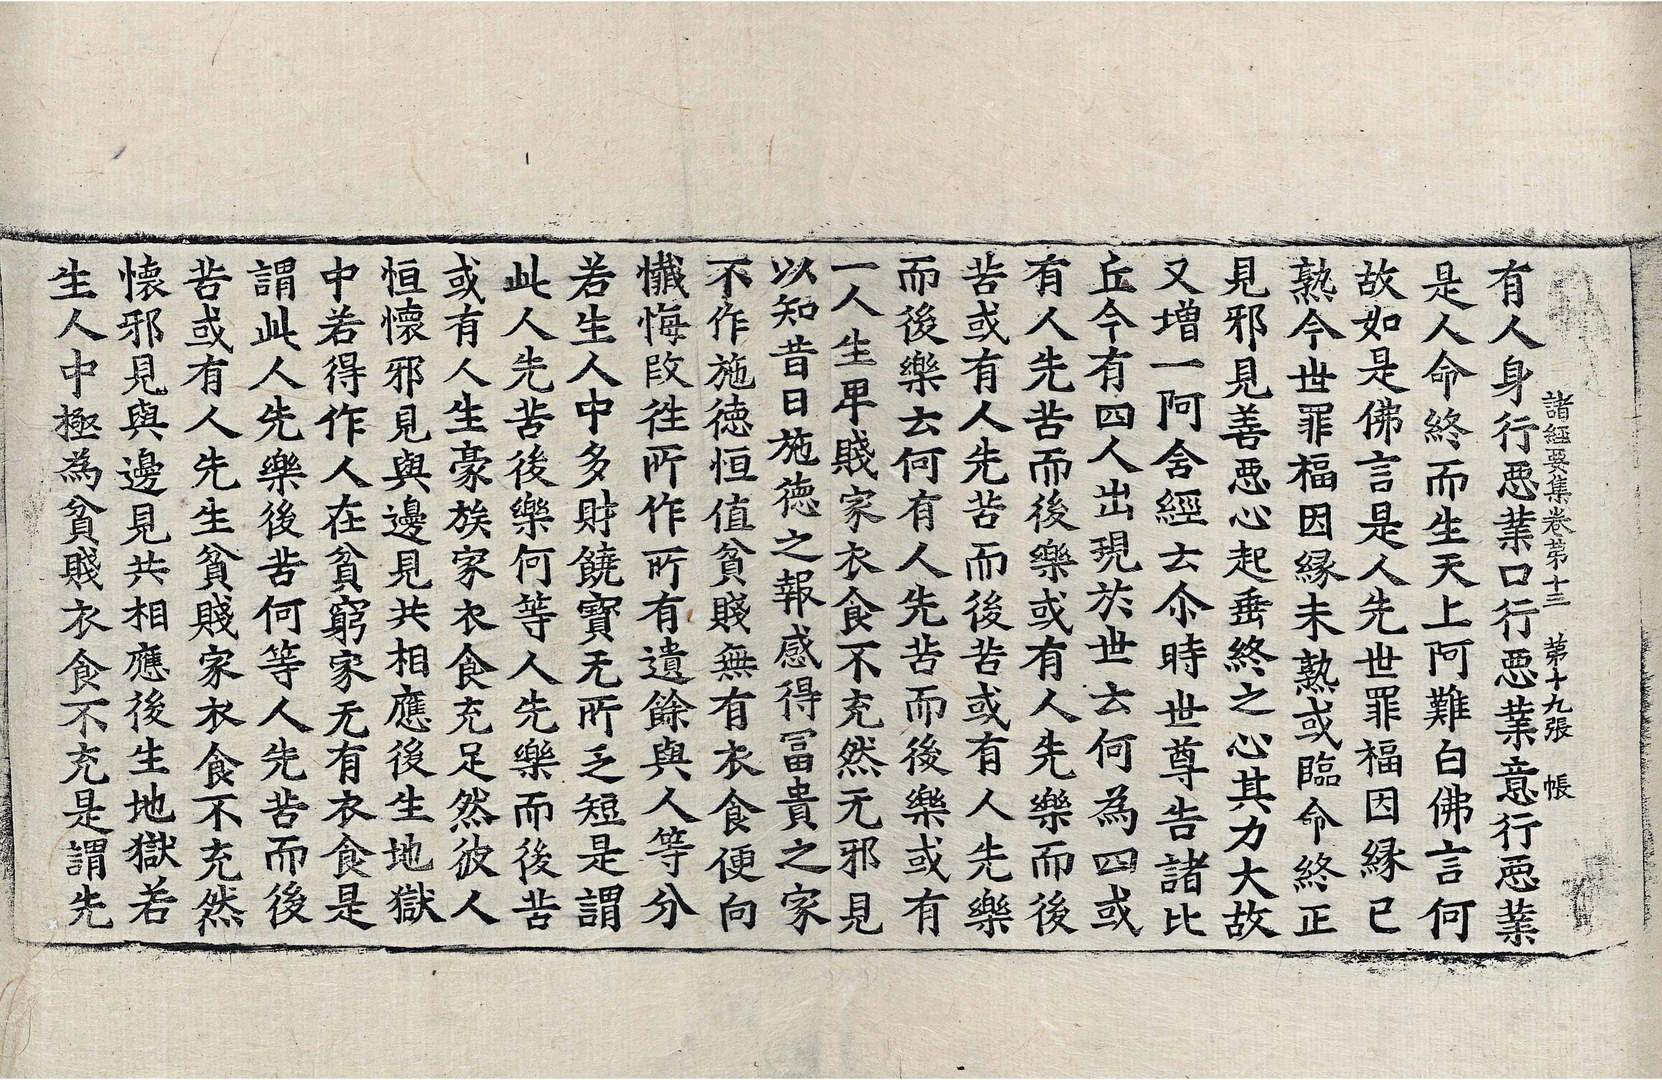 諸經要集卷第十三　第十九張　帳
有人身行惡業口行惡業意行惡業
是人命終而生天上阿難白佛言何
故如是佛言是人先世罪福因緣已
熟今世罪福因緣未熟或臨命終正
見邪見善惡心起垂終之心其力大故
又增一阿含經云尒時世尊告諸比
丘今有四人出現於世云何為四或
有人先苦而後樂或有人先樂而後
苦或有人先苦而後苦或有人先樂
而後樂云何有人先苦而後樂或有
一人生卑賤家衣食不充然无邪見
以知昔日施德之報感得冨貴之家
不作施德恒值貧賤無有衣食便向
懺悔改往所作所有遺餘與人等分
若生人中多財饒寶无所乏短是謂
此人先苦後樂何等人先樂而後苦
或有人生豪族家衣食充足然彼人
恒懷邪見與邊見共相應後生地獄
中若得作人在貧窮家无有衣食是
謂此人先樂後苦何等人先苦而後
苦或有人先生貧賤家衣食不充然
懷邪見與邊見共相應後生地獄若
生人中極為貧賤衣食不充是謂先